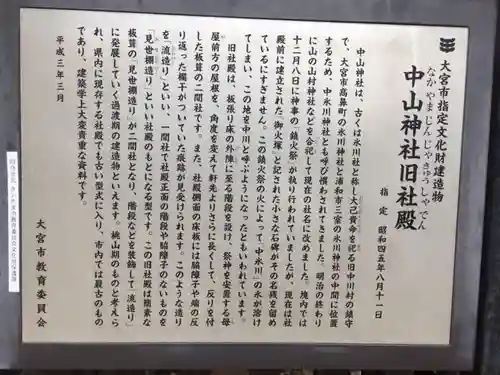 大宮市指定文化財建造物
なかやまじんじゃきゅうしゃでん
中山神社旧社殿
指定 昭和四五年八月十一日
中山神社は、古くは氷川社と称し大己貴命を祀る旧中川村の鎮守
で、大宮市高鼻町の氷川神社と浦和市三室の氷川神社の中間に位置
するため、中氷川神社とも呼び慣わされてきました。明治の終わり
に山の山村神社などを合祀して現在の社名に改めました。境内では
十二月八日に神事の「鎮火祭」が執り行われていましたが、現在は社
殿前に建立された「御火塚」と記された小さな石碑がその名残を留め
ているにすぎません。この鎮火祭の火によって「中氷川」の氷が溶け
てしまい、この地を中川と呼ぶようになったともいわれています。
旧社殿は、板張り床の外陣に至る階段を設け、祭神を安置する母
屋前方の屋根を、角度を変えて軒先よりさらに長くして、反りを付
した板葺の二間社です。また、社殿側面の床板には脇障子や端の反
り返った欄干がついていた痕跡が見受けられます。このような造り
を「流造り」といい、一間社で社殿正面の階段や脇障子のないものを
「見世棚造り」といい社殿のもとになる型です。この旧社殿は簡素な
板葺の「見世棚造り」が二間社となり、階段などを装飾して「流造り」
に発展していく過渡期の建造物といえます。桃山期のものと考えら
れ、県内に現存する社殿でも古い型式に入り、市内では最古のもの
であり、建築学上大変貴重な資料です。
平成三年三月
大宮市教育委員会